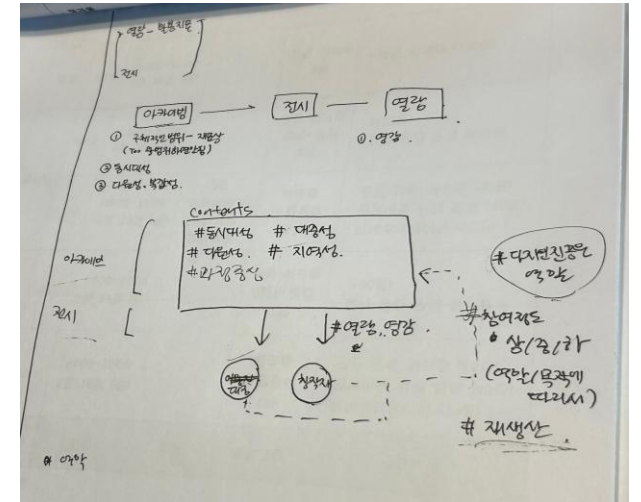 열람 - 활용지표
전시
아카이빙
전시
열람
① 구체적인 범위 -
(Too 광범위하면 안됨)
② 동시대성
③ 다원성. 복합성.
①. 영감.
contents
#동시대성 # 대중성
# 다원성. # 지역성.
#과정중심
아카이브
전시
#열람, 영감.
대중
창작자
# 디자인진흥원
역할
# 참여정도
• 상/중/하
(역할/목적에
따라서)
# 재생산
# 역할